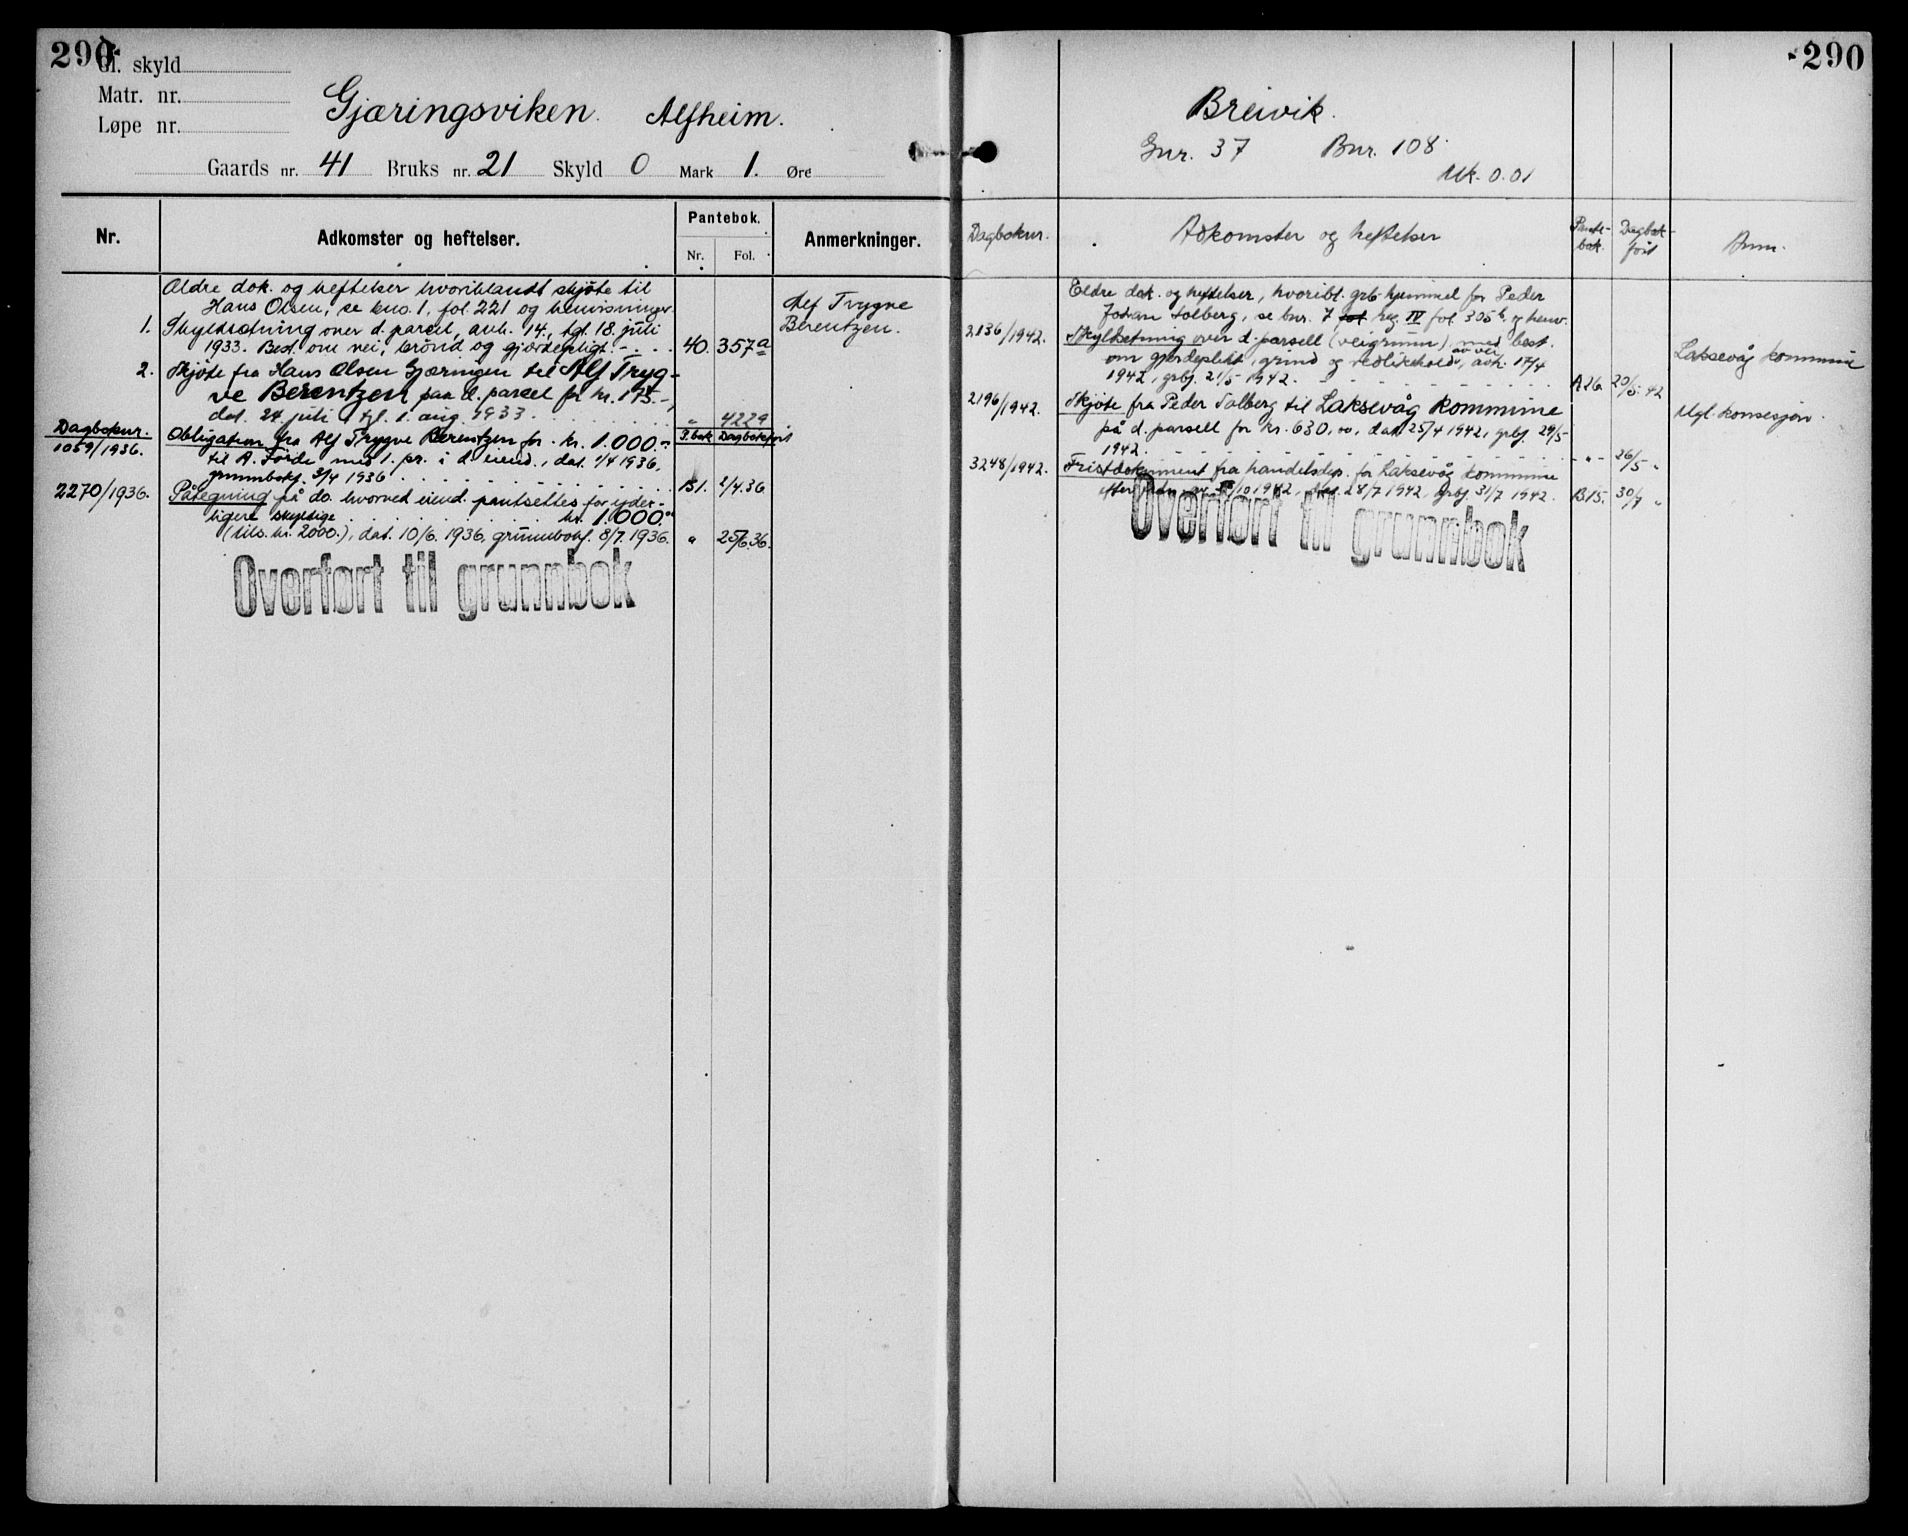 290
Gl. skyld
Matr. nr.
Løpe nr.
Gjæringsviken. Alfheim.
Gaards nr. 41 Bruks nr. 21 Skyld 0 Mark 1. Øre
Nr.
Adkomster og heftelser.
Pantebok.
Nr. Fol.
Anmerkninger.
Ældre dok. og heftelser hvoriblandt skjøte til
Hans Olsen, se bno. 1, fol. 221 og henvisninger
Alf Trygve
Berentzen.
1. Skyldsetning over d. parcel, avh. 14., tgl. 18. juli
1933. Best. om vei, brønd og gjærdepligt. - . . . 40. 357a
2. Skjøte fra Hans Olsen Gjæringen til Alf Tryg-
ve Berentzen paa d. parcel for kr. 175.-,
dat. 24 juli, tgl. 1. aug. 1933. . . . . . . . " 422a
Dagboknr. P.bok Dagbokført
1059/1936. Obligation fra Alf Trygve Berentzen for kr. 1.000.-
til A. Førde med 1. pr. i d. eiend., dat. 1/4 1936,
grunnbokf. 3/4 1936 . . . . . . . . B1. 2/4.36
2270/1936. Påtegning på do. hvorved eiend. pantsettes for yder-
ligere skyldige . . . . . . kr. 1.000.-
(tils. kr. 2000.), dat. 10/6. 1936, grunnbokf. 8/7. 1936. " 25/6.36.
Overført til grunnbok
290
Breivik.
Gnr. 37 Bnr. 108.
Mk. 0.01
Dagboknr.
Adkomster og heftelser
Pante-
bok.
Dagbok-
ført
Anm.
Eldre dok. og heftelser, hvoribl. grb. hjemmel for Peder
Johan Solberg, se bnr. 7 reg. IV fol. 305b, og henv.
2136/1942. Skyldsetning over d. parsell (veigrunn), med best.
om gjerdeplikt, grind og vedlikehold av vei, avh. 17/4
1942, grbf. 21/5 1942. . . . . . . . A26. 20/5.42
Laksevåg kommune
2196/1942. Skjøte fra Peder Solberg til Laksevåg kommune
på d. parsell for kr. 630,00, dat. 25/4 1942, grbf. 29/5
1942. . . . . . . . -"- 26/5 "
Ugl. konsesjon.
3248/1942. Fristdokument fra handelsdep. for Laksevåg kommune
1942, dat. 28/7 1942, grbf. 31/7 1942. B15. 30/7 "
Overført til grunnbok